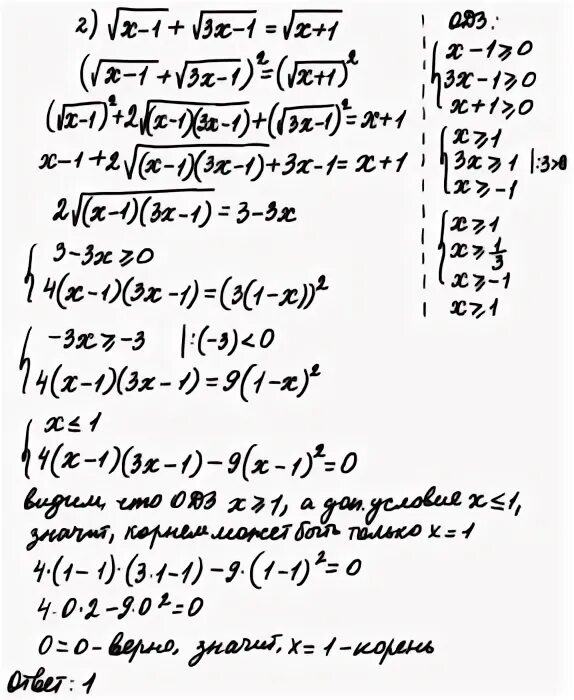 2) √(x-1) + √(3x-1) = √(x+1)
(√(x-1) + √(3x-1))² = (√(x+1))²
(√(x-1))² + 2√((x-1)(3x-1)) + (√(3x-1))² = x+1
x-1 + 2√((x-1)(3x-1)) + 3x-1 = x+1
2√((x-1)(3x-1)) = 3-3x
{ 3-3x ⩾ 0
4(x-1)(3x-1) = (3(1-x))²
{ -3x ⩾ -3 |:(-3) < 0
4(x-1)(3x-1) = 9(1-x)²
{ x ≤ 1
4(x-1)(3x-1) - 9(x-1)² = 0
видим, что ОДЗ x ⩾ 1, а доп. условие x ≤ 1,
значит, корнем может быть только x = 1
4·(1-1)·(3·1-1) - 9·(1-1)² = 0
4·0·2 - 9·0² = 0
0 = 0 - верно, значит, x = 1 - корень
Ответ: 1
ОДЗ:
{ x-1 ⩾ 0
3x-1 ⩾ 0
x+1 ⩾ 0
{ x ⩾ 1
3x ⩾ 1 |:3>0
x ⩾ -1
{ x ⩾ 1
x ⩾ 1/3
x ⩾ -1
x ⩾ 1